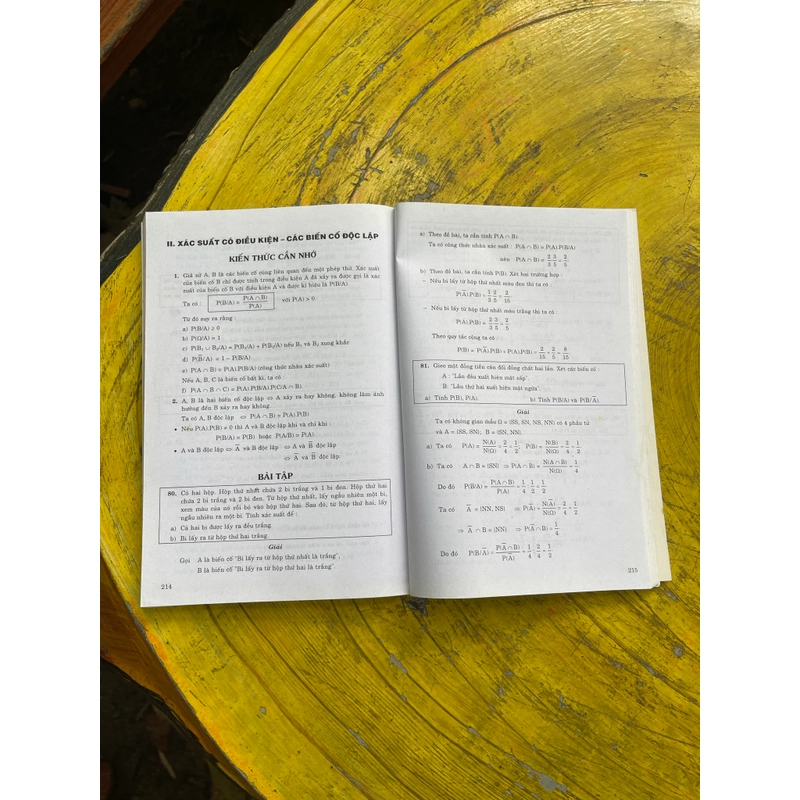 II. XÁC SUẤT CÓ ĐIỀU KIỆN – CÁC BIẾN CỐ ĐỘC LẬP
KIẾN THỨC CẦN NHỚ
1. Giả sử A, B là các biến cố cùng liên quan đến một phép thử. Xác suất
của biến cố B chỉ được tính trong điều kiện A đã xảy ra được gọi là xác
suất của biến cố B với điều kiện A và được kí hiệu là P(B/A)
Ta có : P(B/A) = P(A ∩ B)/P(A) với P(A) > 0
Từ đó suy ra rằng :
a) P(B/A) ≥ 0
b) P(Ω/A) = 1
c) P(B₁ ∪ B₂/A) = P(B₁/A) + P(B₂/A) nếu B₁ và B₂ xung khắc
d) P(B̅/A) = 1 – P(B/A)
e) P(A ∩ B) = P(A).P(B/A) (công thức nhân xác suất)
Nếu A, B, C là biến cố bất kì, ta có :
f) P(A ∩ B ∩ C) = P(A).P(B/A).P(C/A ∩ B)
2. A, B là hai biến cố độc lập ⇔ A xảy ra hay không, không làm ảnh
hưởng đến B xảy ra hay không.
Ta có A, B độc lập ⇔ P(A ∩ B) = P(A).P(B)
• Nếu P(A).P(B) ≠ 0 thì A và B độc lập khi và chỉ khi :
P(B/A) = P(B) hoặc P(A/B) = P(A)
• A và B độc lập ⇔ A̅ và B độc lập ⇔ A và B̅ độc lập
⇔ A̅ và B̅ độc lập.
BÀI TẬP
80. Có hai hộp. Hộp thứ nhất chứa 2 bi trắng và 1 bi đen. Hộp thứ hai
chứa 2 bi trắng và 2 bi đen. Từ hộp thứ nhất, lấy ngẫu nhiên một bi,
xem màu của nó rồi bỏ vào hộp thứ hai. Sau đó, từ hộp thứ hai, lấy
ngẫu nhiên ra một bi. Tính xác suất để :
a) Cả hai bi được lấy ra đều trắng.
b) Bi lấy ra từ hộp thứ hai trắng.
Giải
Gọi A là biến cố "Bi lấy ra từ hộp thứ nhất là trắng",
B là biến cố "Bi lấy ra từ hộp thứ hai là trắng".
214
a) Theo đề bài, ta cần tính P(A ∩ B).
Ta có công thức nhân xác suất : P(A ∩ B) = P(A).P(B/A)
nên P(A ∩ B) = 2/3 . 3/5 = 2/5
b) Theo đề bài, ta cần tính P(B). Xét hai trường hợp :
– Nếu bi lấy từ hộp thứ nhất màu đen thì ta có :
P(A̅).P(B) = 1/3 . 2/5 = 2/15
– Nếu bi lấy từ hộp thứ nhất màu trắng thì ta có :
P(A).P(B) = 2/3 . 3/5 = 2/5
Theo quy tắc cộng ta có :
P(B) = P(A̅).P(B) + P(A).P(B) = 2/15 + 2/5 = 8/15
81. Gieo một đồng tiền cân đối đồng chất hai lần. Xét các biến cố :
A : "Lần đầu xuất hiện mặt sấp".
B: "Lần thứ hai xuất hiện mặt ngửa".
a) Tính P(B), P(A). b) Tính P(B/A) và P(B/A̅).
Giải
Ta có không gian mẫu Ω = {SS, SN, NS, NN} có 4 phần tử
và A = {SS, SN}; B = {SN, NN}.
a) Ta có P(A) = N(A)/N(Ω) = 2/4 = 1/2, P(B) = N(B)/N(Ω) = 2/4 = 1/2
b) Ta có A ∩ B = {SN} ⇒ P(A ∩ B) = N(A ∩ B)/N(Ω) = 1/4
Do đó P(B/A) = P(A ∩ B)/P(A) = 1/4 : 1/2 = 1/2
Ta có A̅ = {NN, NS} ⇒ P(A̅) = N(A̅)/N(Ω) = 2/4 = 1/2
⇒ A̅ ∩ B = {NN} ⇒ P(A̅ ∩ B) = 1/4
Do đó P(B/A̅) = P(A̅ ∩ B)/P(A̅) = 1/4 : 2/4 = 1/2
215